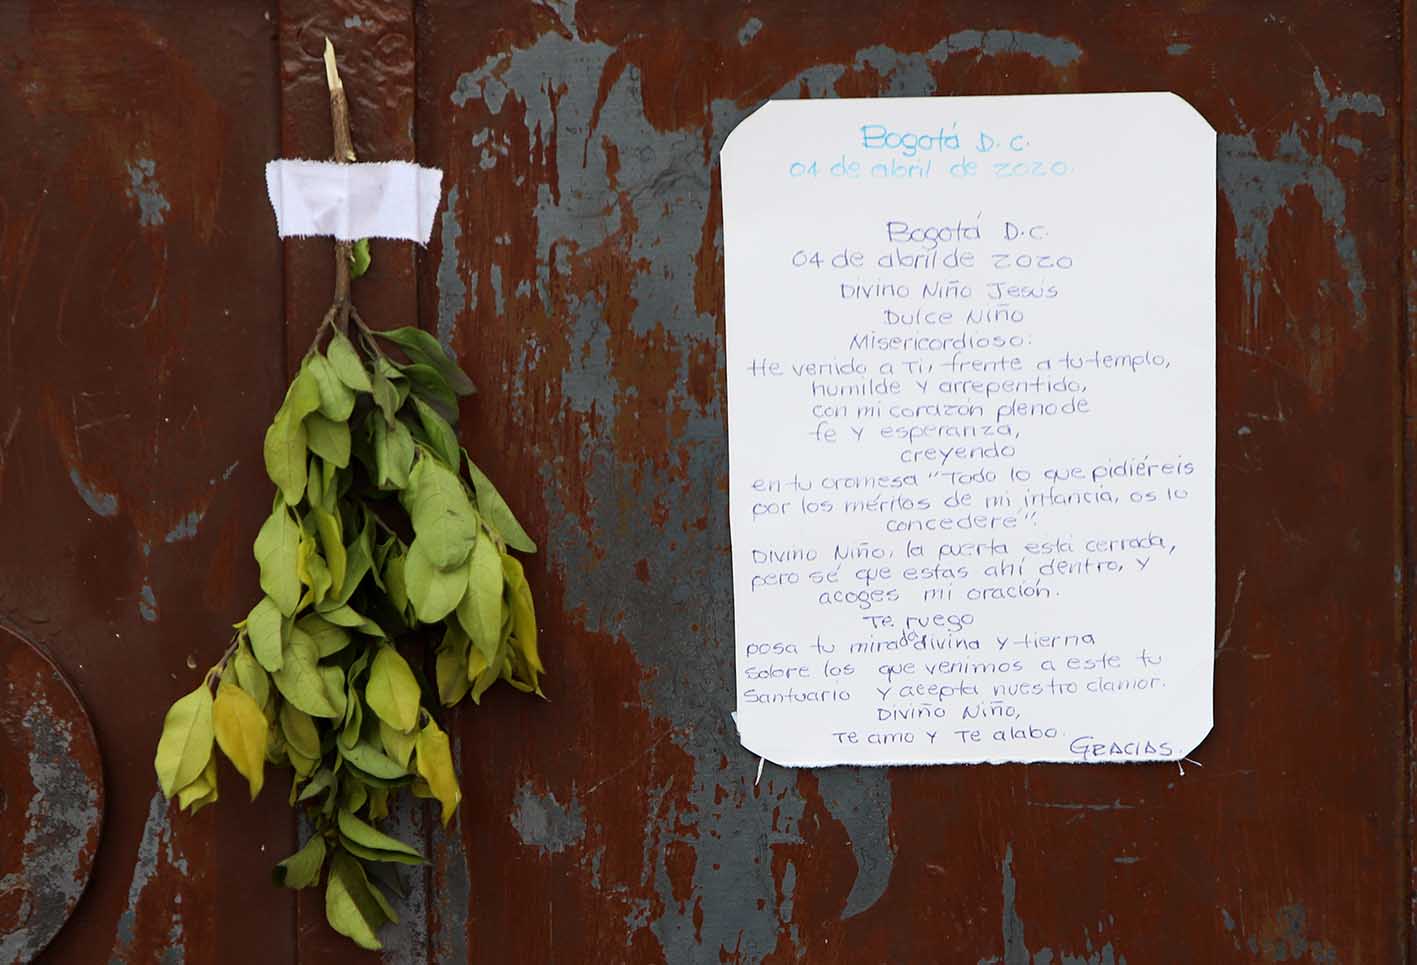 Bogotá D.C.
04 de abril de 2020.
Bogotá D.C.
04 de abril de 2020
Divino Niño Jesús
Dulce Niño
Misericordioso:
He venido a Ti, frente a tu templo,
humilde y arrepentido,
con mi corazón pleno de
fe y esperanza,
creyendo
en tu promesa "Todo lo que pidiéreis
por los méritos de mi infancia, os lo
concederé".
Divino Niño, la puerta está cerrada,
pero sé que estas ahí dentro, y
acoges mi oración.
Te ruego
posa tu mirada divina y tierna
sobre los que venimos a este tu
Santuario y acepta nuestro clamor.
Diviño Niño,
Te amo y Te alabo.
Gracias.